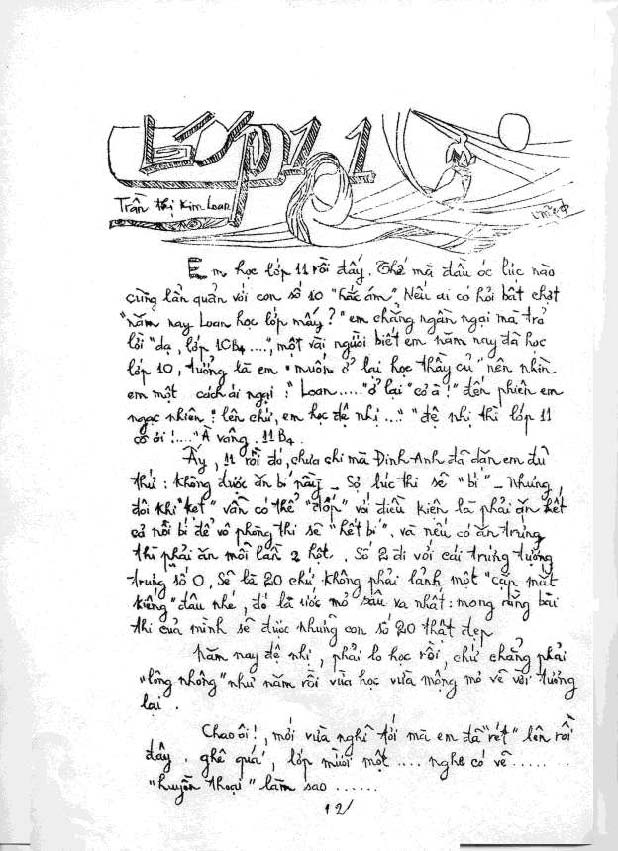 Lớp 11
Trần thị Kim Loan
Em học lớp 11 rồi đấy. Thế mà đầu óc lúc nào
cũng lẩn quẩn với con số 10 "hắc ám". Nếu ai có hỏi bất chợt
"năm nay Loan học lớp mấy?" em chẳng ngần ngại mà trả
lời "dạ, lớp 10B4....", một vài người biết em năm nay đã học
lớp 10, tưởng là em "muốn ở lại học thầy củ" nên nhìn
em một cách ái ngại: "Loan..... ở lại cơ à!" đến phiên em
ngạc nhiên: "lên chứ, em học đệ nhị...." "đệ nhị thì lớp 11
cô ơi!...." À vâng. 11B4.
Ấy, 11 rồi đó, chưa chi mà Đinh-Anh đã dặn em đủ
thứ: không được ăn bí này - Sợ lúc thi sẽ "bí" - nhưng
đôi khi "kẹt" vẫn có thể "đớp" với điều kiện là phải ăn hết
cả nồi bí để vô phòng thi sẽ "hết bí". và nếu có ăn trứng
thì phải ăn mỗi lần 2 hột. Số 2 đi với cái trứng tượng
trưng số 0, Sẽ là 20 chứ không phải lảnh một "cặp mắt
kiếng" đâu nhé, đó là ước mơ sâu xa nhất: mong rằng bài
thi của mình sẽ được những con số 20 thật đẹp
Năm nay đệ nhị, phải lo học rồi, chứ chẳng phải
"lông nhông" như năm rồi vừa học vừa mộng mơ về với tương
lai.
Chao ôi!, mới vừa nghĩ tới mà em đã "rét" lên rồi
đây. ghê quá, lớp mười một .... nghe có vẻ ......
"huyền thoại" làm sao ......
12/